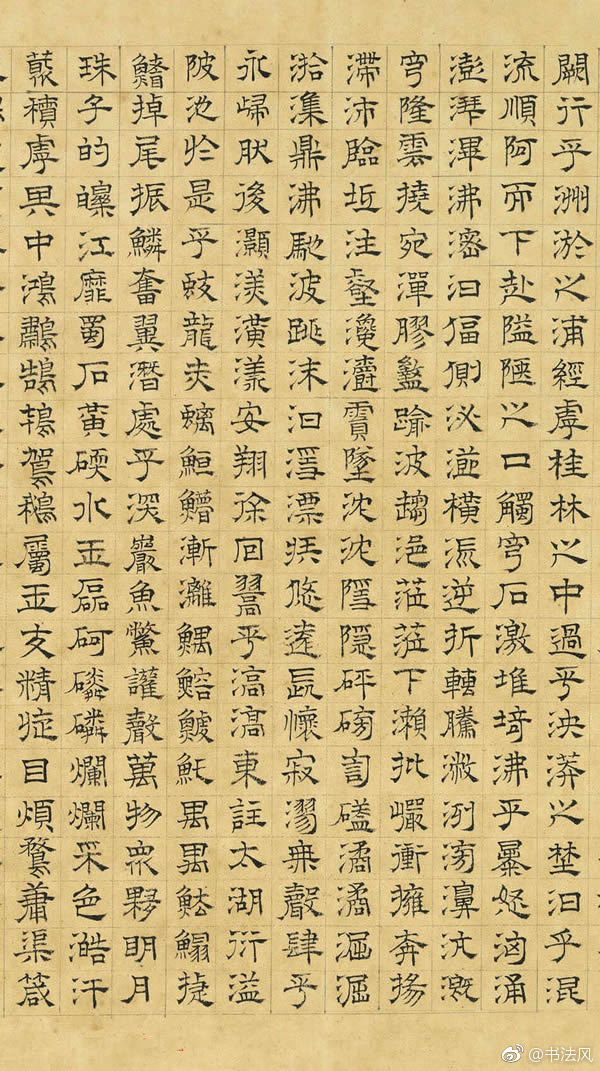 闕行乎洲淤之浦經虖桂林之中過乎泱漭之埜汩乎混
流順阿而下赴隘陿之口觸穹石激堆埼沸乎暴怒洶涌
澎湃滭沸滵汩偪側泌瀄橫流逆折轉騰潎洌滂濞沆溉
穹隆雲撓宛潬膠盭踰波趨浥蒞蒞下瀨批巖衝擁奔揚
滯沛臨坻注壑瀺灂霣墜沈沈隱隱砰磅訇磕潏潏淈淈
湁潗鼎沸馳波跳沫汩漂疾悠遠長懷寂漻無聲肆乎
永歸肰後灝溔潢漾安翔徐回翯乎滈滈東註太湖衍溢
陂池於是乎蛟龍赤螭䱭䲛漸離鰅鰫鰬魠禺禺魼鰨揵
鰭掉尾振鱗奮翼潛處乎深巖魚鱉讙聲萬物眾夥明月
珠子的皪江靡蜀石黃碝水玉磊砢磷磷爛爛采色澔汗
藂積虖其中鴻鷫鵠鴇鴐鵝屬玉交精旋目煩鶩庸渠箴
@书法风